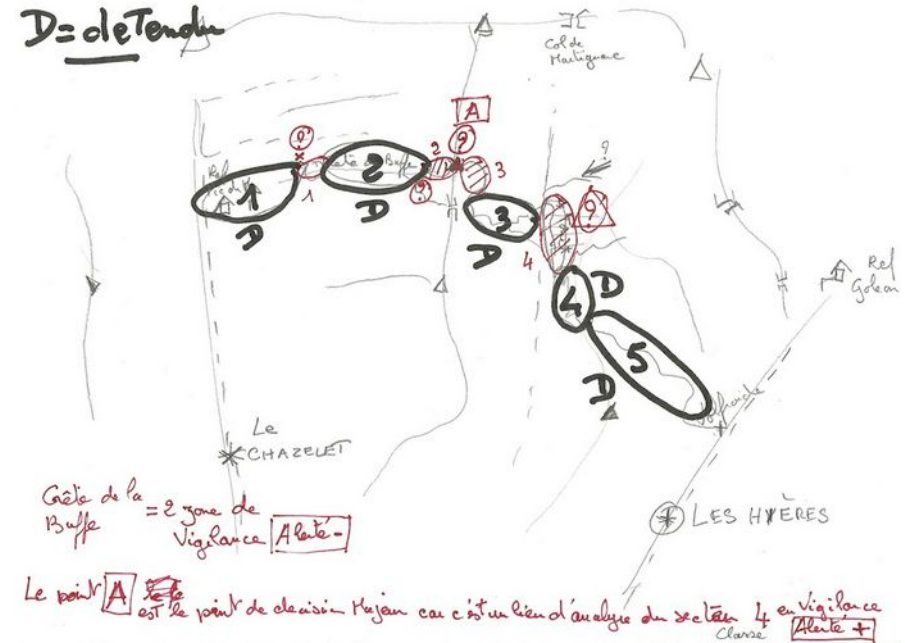 D = deTendu
Col de
Martignare
A
?
?
2
3
1
2
?
1
D
D
3
D
4
?
?
D
4
5
D
Ref
Goleon
Le
CHAZELET
LES HIÈRES
Crête de la
Buffe = 2 zone de
Vigilance Alerté -
Le point A
est le point de decision Majeur car c'est un lieu d'analyse du secteur 4 en Vigilance
Classe Alerté +